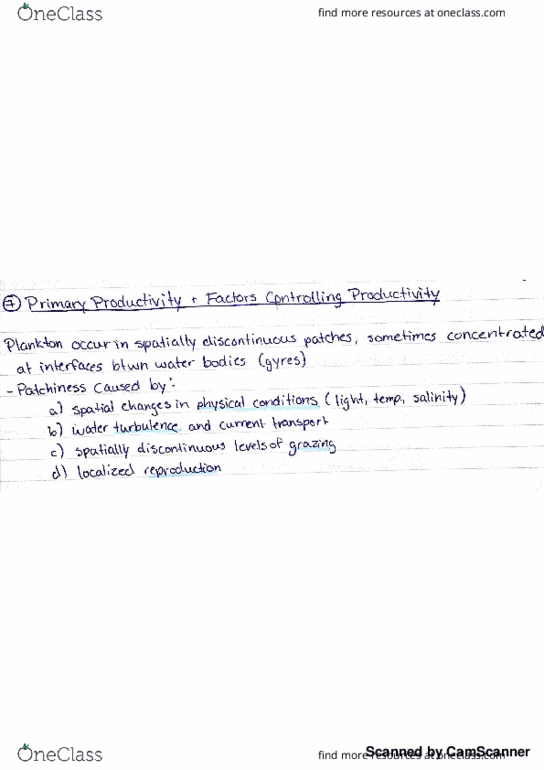 OneClass
find more resources at oneclass.com
⑦ Primary Productivity + Factors Controlling Productivity
Plankton occur in spatially discontinuous patches, sometimes concentrated
at interfaces btwn water bodies (gyres)
- Patchiness caused by:
a) spatial changes in physical conditions (light, temp, salinity)
b) water turbulence and current transport
c) spatially discontinuous levels of grazing
d) localized reproduction
OneClass
find more resources at oneclass.com
Scanned by CamScanner